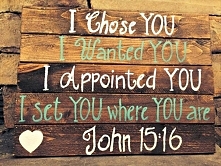 I Chose YOU
I Wanted YOU
I Appointed YOU
I set YOU where YOU are
John 15:16